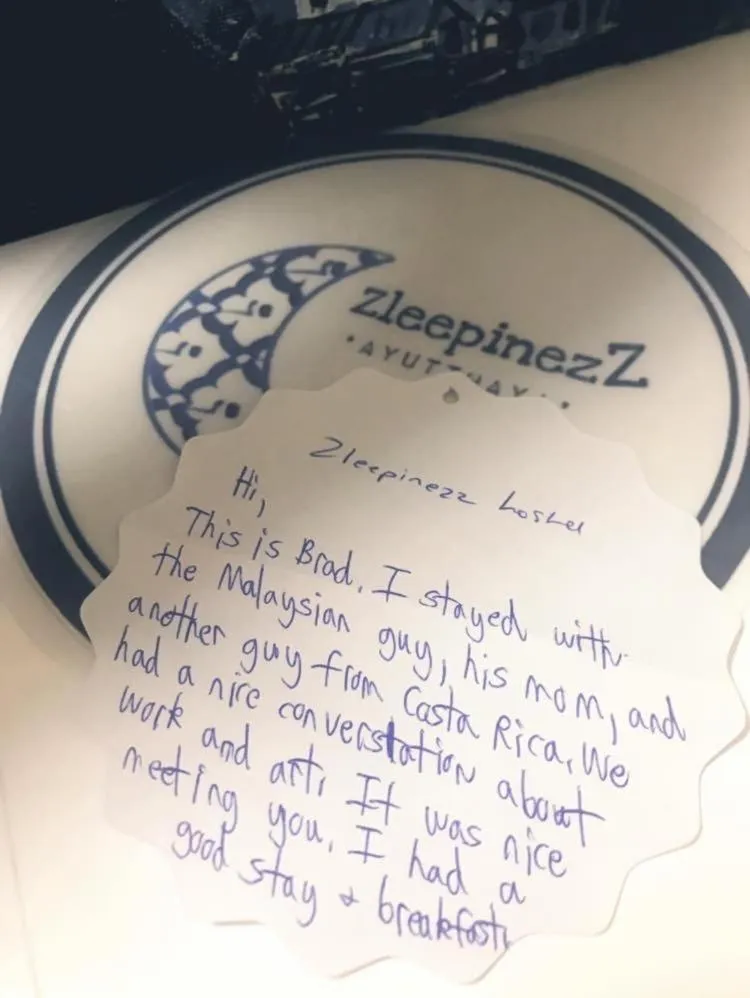 zleepinezZ
•AYUTTHAYA•
Zleepinezz hostel
Hi,
This is Brad. I stayed with
the Malaysian guy, his mom, and
another guy from Costa Rica. We
had a nice converstation about
work and art. It was nice
meeting you. I had a
good stay & breakfast.